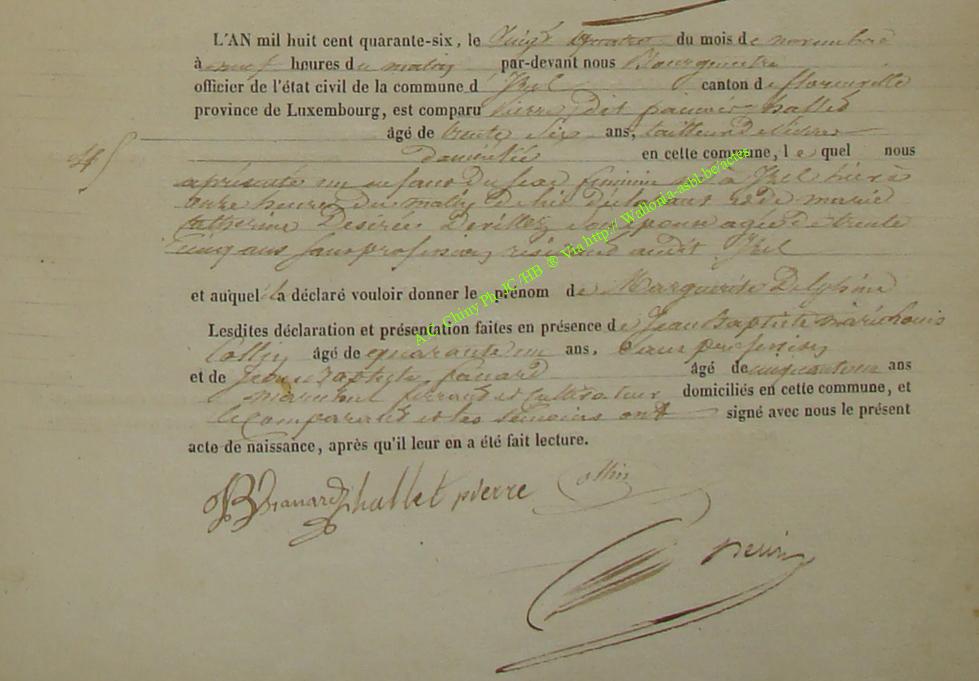 L'AN mil huit cent quarante-six, le vingt quatre du mois de novembre
à neuf heures du matin par-devant nous Bourgmestre
officier de l'état civil de la commune d' Izel canton de florenville
province de Luxembourg, est comparu Pierre dit hallet
âgé de trente six ans, tailleur de Pierre
45
domicilié en cette commune, le quel nous
a présenté un enfant du sexe féminin né à Izel hier à
onze heures du matin de lui déclarant et de marie
catherine Desirée Devillez son épouse agée de trente
cinq ans sans profession audit Izel
et auquel il a déclaré vouloir donner le prénom de Marguerite Delphine
Lesdites déclaration et présentation faites en présence de Jean Baptiste
Collin âgé de quarante un ans, sans profession
et de Jean Baptiste âgé de ans
marechal ferrand et Cultivateur domiciliés en cette commune, et
le Comparant et les témoins ont signé avec nous le présent
acte de naissance, après qu'il leur en a été fait lecture.
hallet pierre ollin
Act. Chiny Ph. JC /HB ® Via http:// Wallonia-asbl.be/actes